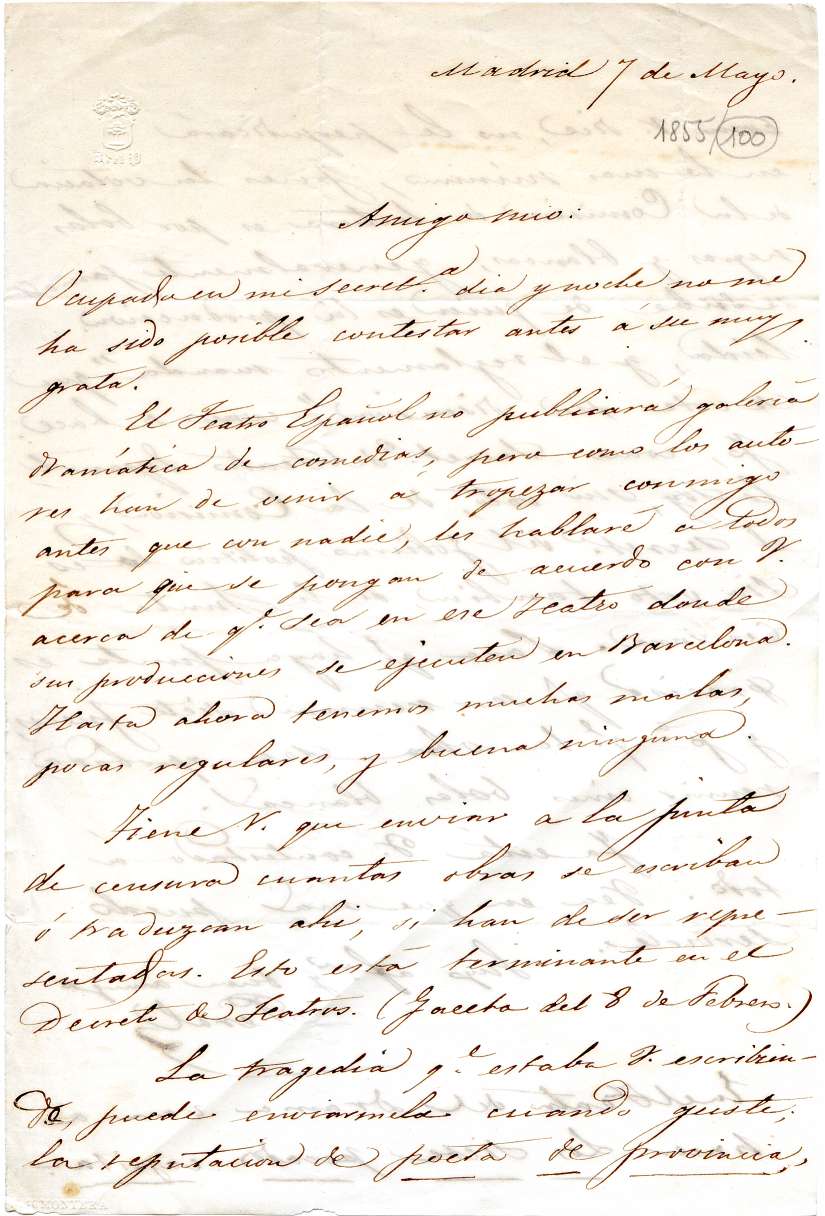 Madrid 7 de Mayo.
1855/100
Amigo mio:
Ocupado en mi secret.ª dia y noche no me
ha sido posible contestar antes á su muy
grata.
El Teatro Español no publicará galeria
dramática de comedias, pero como los auto-
res han de venir á tropezar conmigo
antes que con nadie, les hablaré a todos
para que se pongan de acuerdo con V.
acerca de q.e sea en ese Teatro donde
sus producciones se ejecuten en Barcelona.
Hasta ahora tenemos muchas malas,
pocas regulares, y buena ninguna.
Tiene V. que enviar a la junta
de censura cuantas obras se escriban
ó traduzcan ahi, si han de ser repre-
sentadas. Esto está terminante en el
Decreto de Teatros. (Gaceta del 8 de Febrero.)
La tragedia q.e estaba V. escribien-
do, puede enviarmela cuando guste;
la reputacion de poeta de provincia,